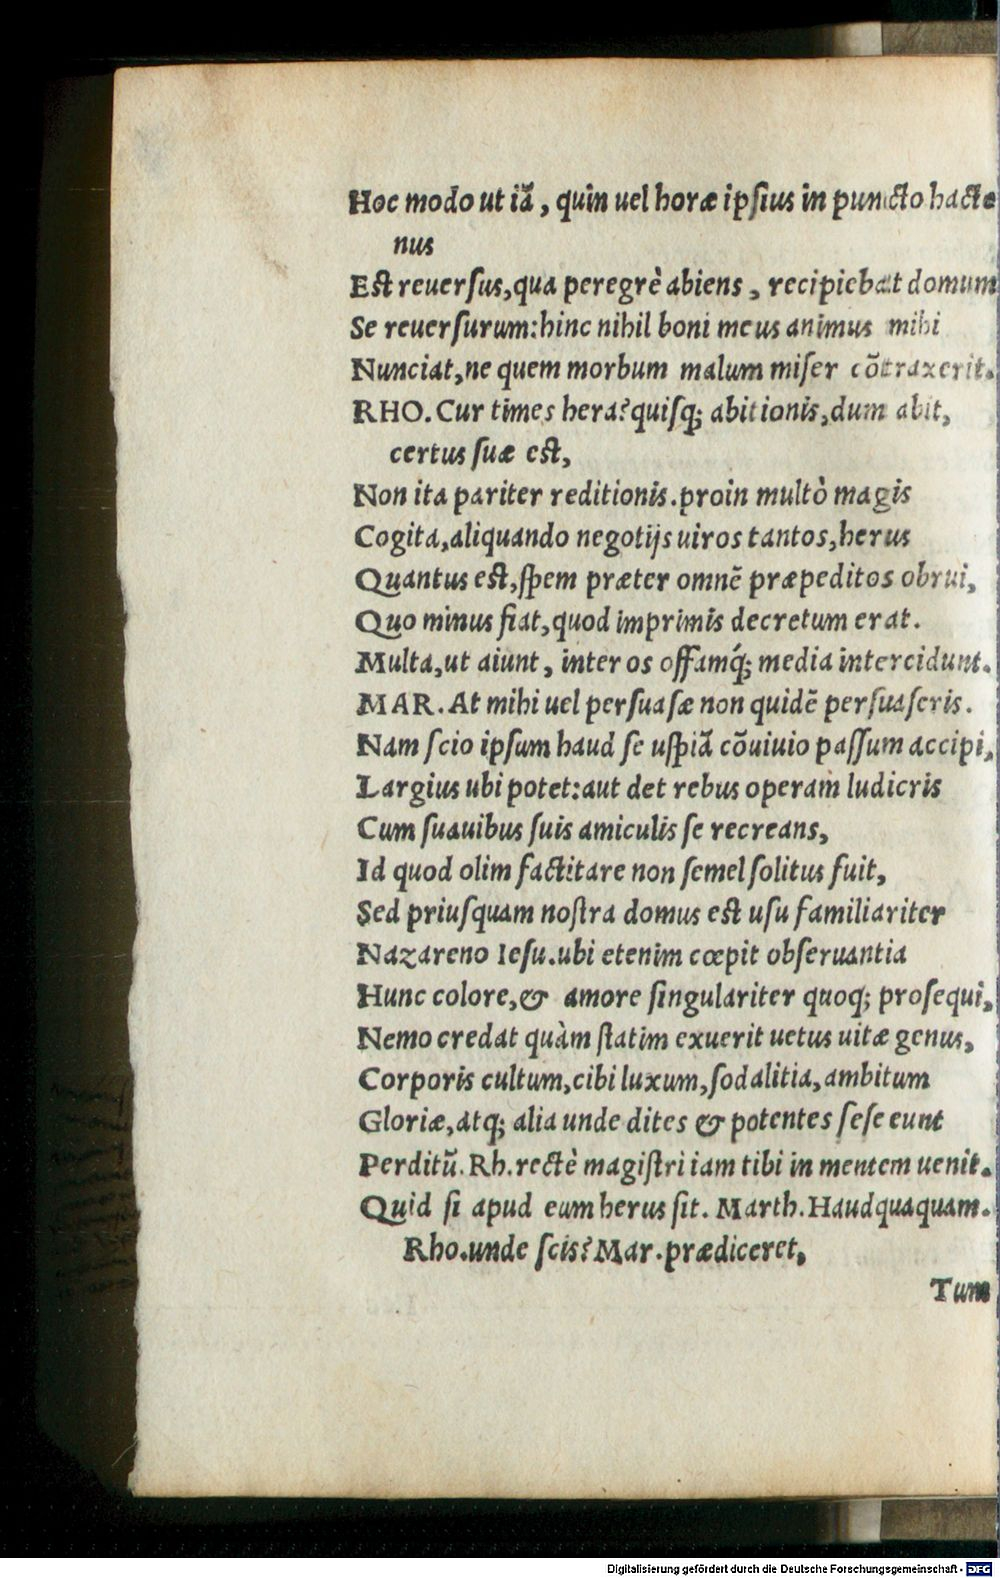 Hoc modo ut iã, quin uel horæ ipsius in puncto hacte
nus
Est reuersus, qua peregrè abiens, recipiebat domum
Se reuersurum: hinc nihil boni meus animus mihi
Nunciat, ne quem morbum malum miser cõtraxerit.
RHO. Cur times hera? quisq; abitionis, dum abit,
certus suæ est,
Non ita pariter reditionis. proin multò magis
Cogita, aliquando negotijs uiros tantos, herus
Quantus est, spem præter omnẽ præpeditos obrui,
Quo minus fiat, quod imprimis decretum erat.
Multa, ut aiunt, inter os offamq́; media intercidunt.
MAR. At mihi uel persuasæ non quidẽ persuaseris.
Nam scio ipsum haud se uspiã cõuiuio passum accipi,
Largius ubi potet: aut det rebus operam ludicris
Cum suauibus suis amiculis se recreans,
Id quod olim factitare non semel solitus fuit,
Sed priusquam nostra domus est usu familiariter
Nazareno Iesu. ubi etenim cœpit obseruantia
Hunc colore, & amore singulariter quoq; prosequi,
Nemo credat quàm statim exuerit uetus uitæ genus,
Corporis cultum, cibi luxum, sodalitia, ambitum
Gloriæ, atq; alia unde dites & potentes sese eunt
Perditũ. Rh. rectè magistri iam tibi in mentem uenit.
Quid si apud eum herus sit. Marth. Haudquaquam.
Rho. unde scis? Mar. prædiceret,
Tum
Digitalisierung gefördert durch die Deutsche Forschungsgemeinschaft - DFG